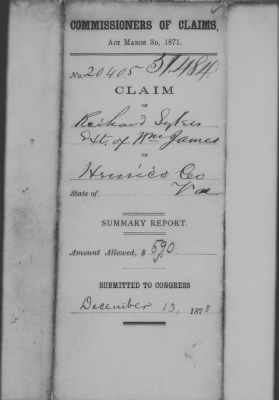 COMMISSIONERS OF CLAIMS,
ACT MARCH 3D, 1871.
No. 20405 51.484
CLAIM
OF
Richard Sykes
Ext. of Wm James
OF
Henrico Co
State of Va
SUMMARY REPORT.
Amount Allowed, $ 590.
SUBMITTED TO CONGRESS
December 13, 1878